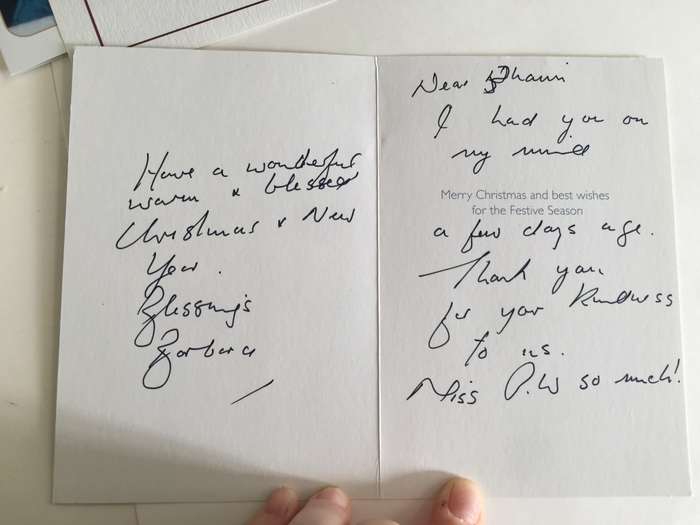 Have a wonderful
warm & blessed
Christmas & New
Year.
Blessings
Barbara
Dear
I had you on
my mind
Merry Christmas and best wishes
for the Festive Season
a few days ago.
Thank you
for your kindness
to us.
Miss P.W so much!